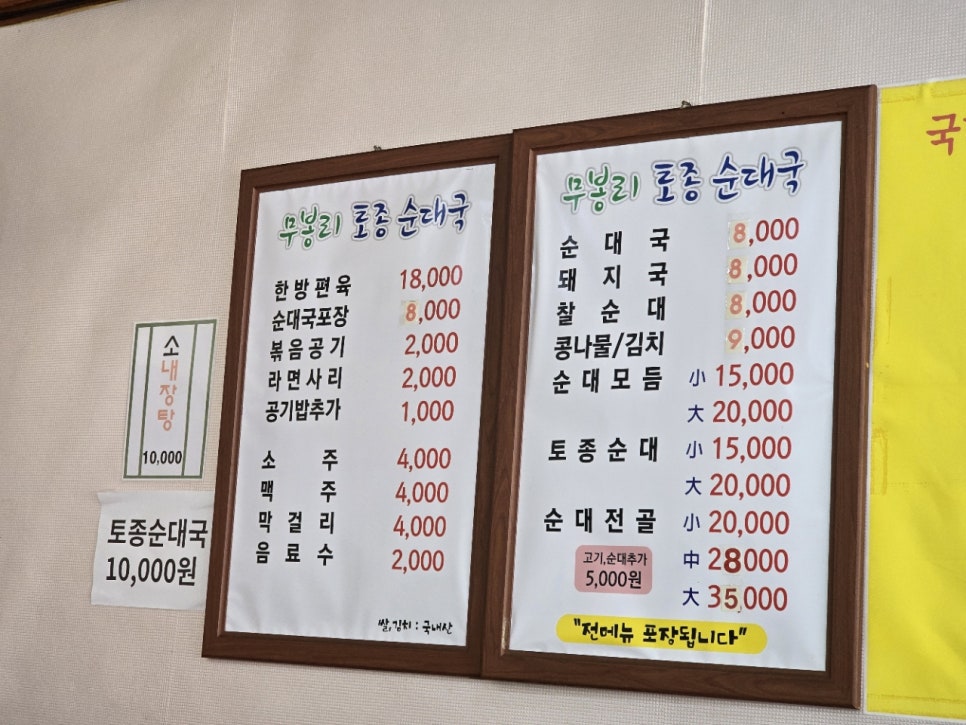 소내장탕
10,000
토종순대국
10,000원
무봉리 토종 순대국
한방편육 18,000
순대국포장 8,000
볶음공기 2,000
라면사리 2,000
공기밥추가 1,000
소주 4,000
맥주 4,000
막걸리 4,000
음료수 2,000
쌀,김치 : 국내산
무봉리 토종 순대국
순대국 8,000
돼지국 8,000
찰순대 8,000
콩나물/김치 9,000
순대모듬 小 15,000
大 20,000
토종순대 小 15,000
大 20,000
순대전골 小 20,000
고기,순대추가
5,000원
中 28,000
大 35,000
"전메뉴 포장됩니다"
국